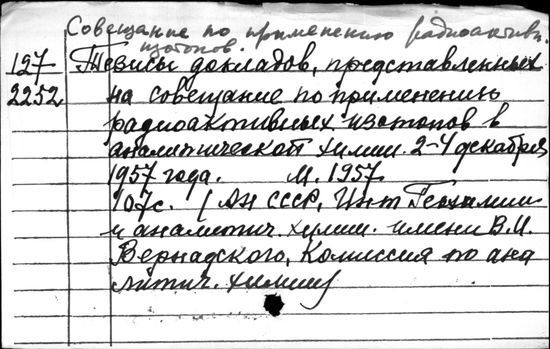 Совещание по применению радиоактивн.
изотопов.
127 Тезисы докладов, представленных
2252 на совещание по применению
радиоактивных изотопов в
аналитической химии. 2-4 декабря
1957 года. М. 1957
107с. (АН СССР, Инт Геохимии
и аналитич. химии. имени В.И.
Вернадского, Комиссия по ана
литич. химии)